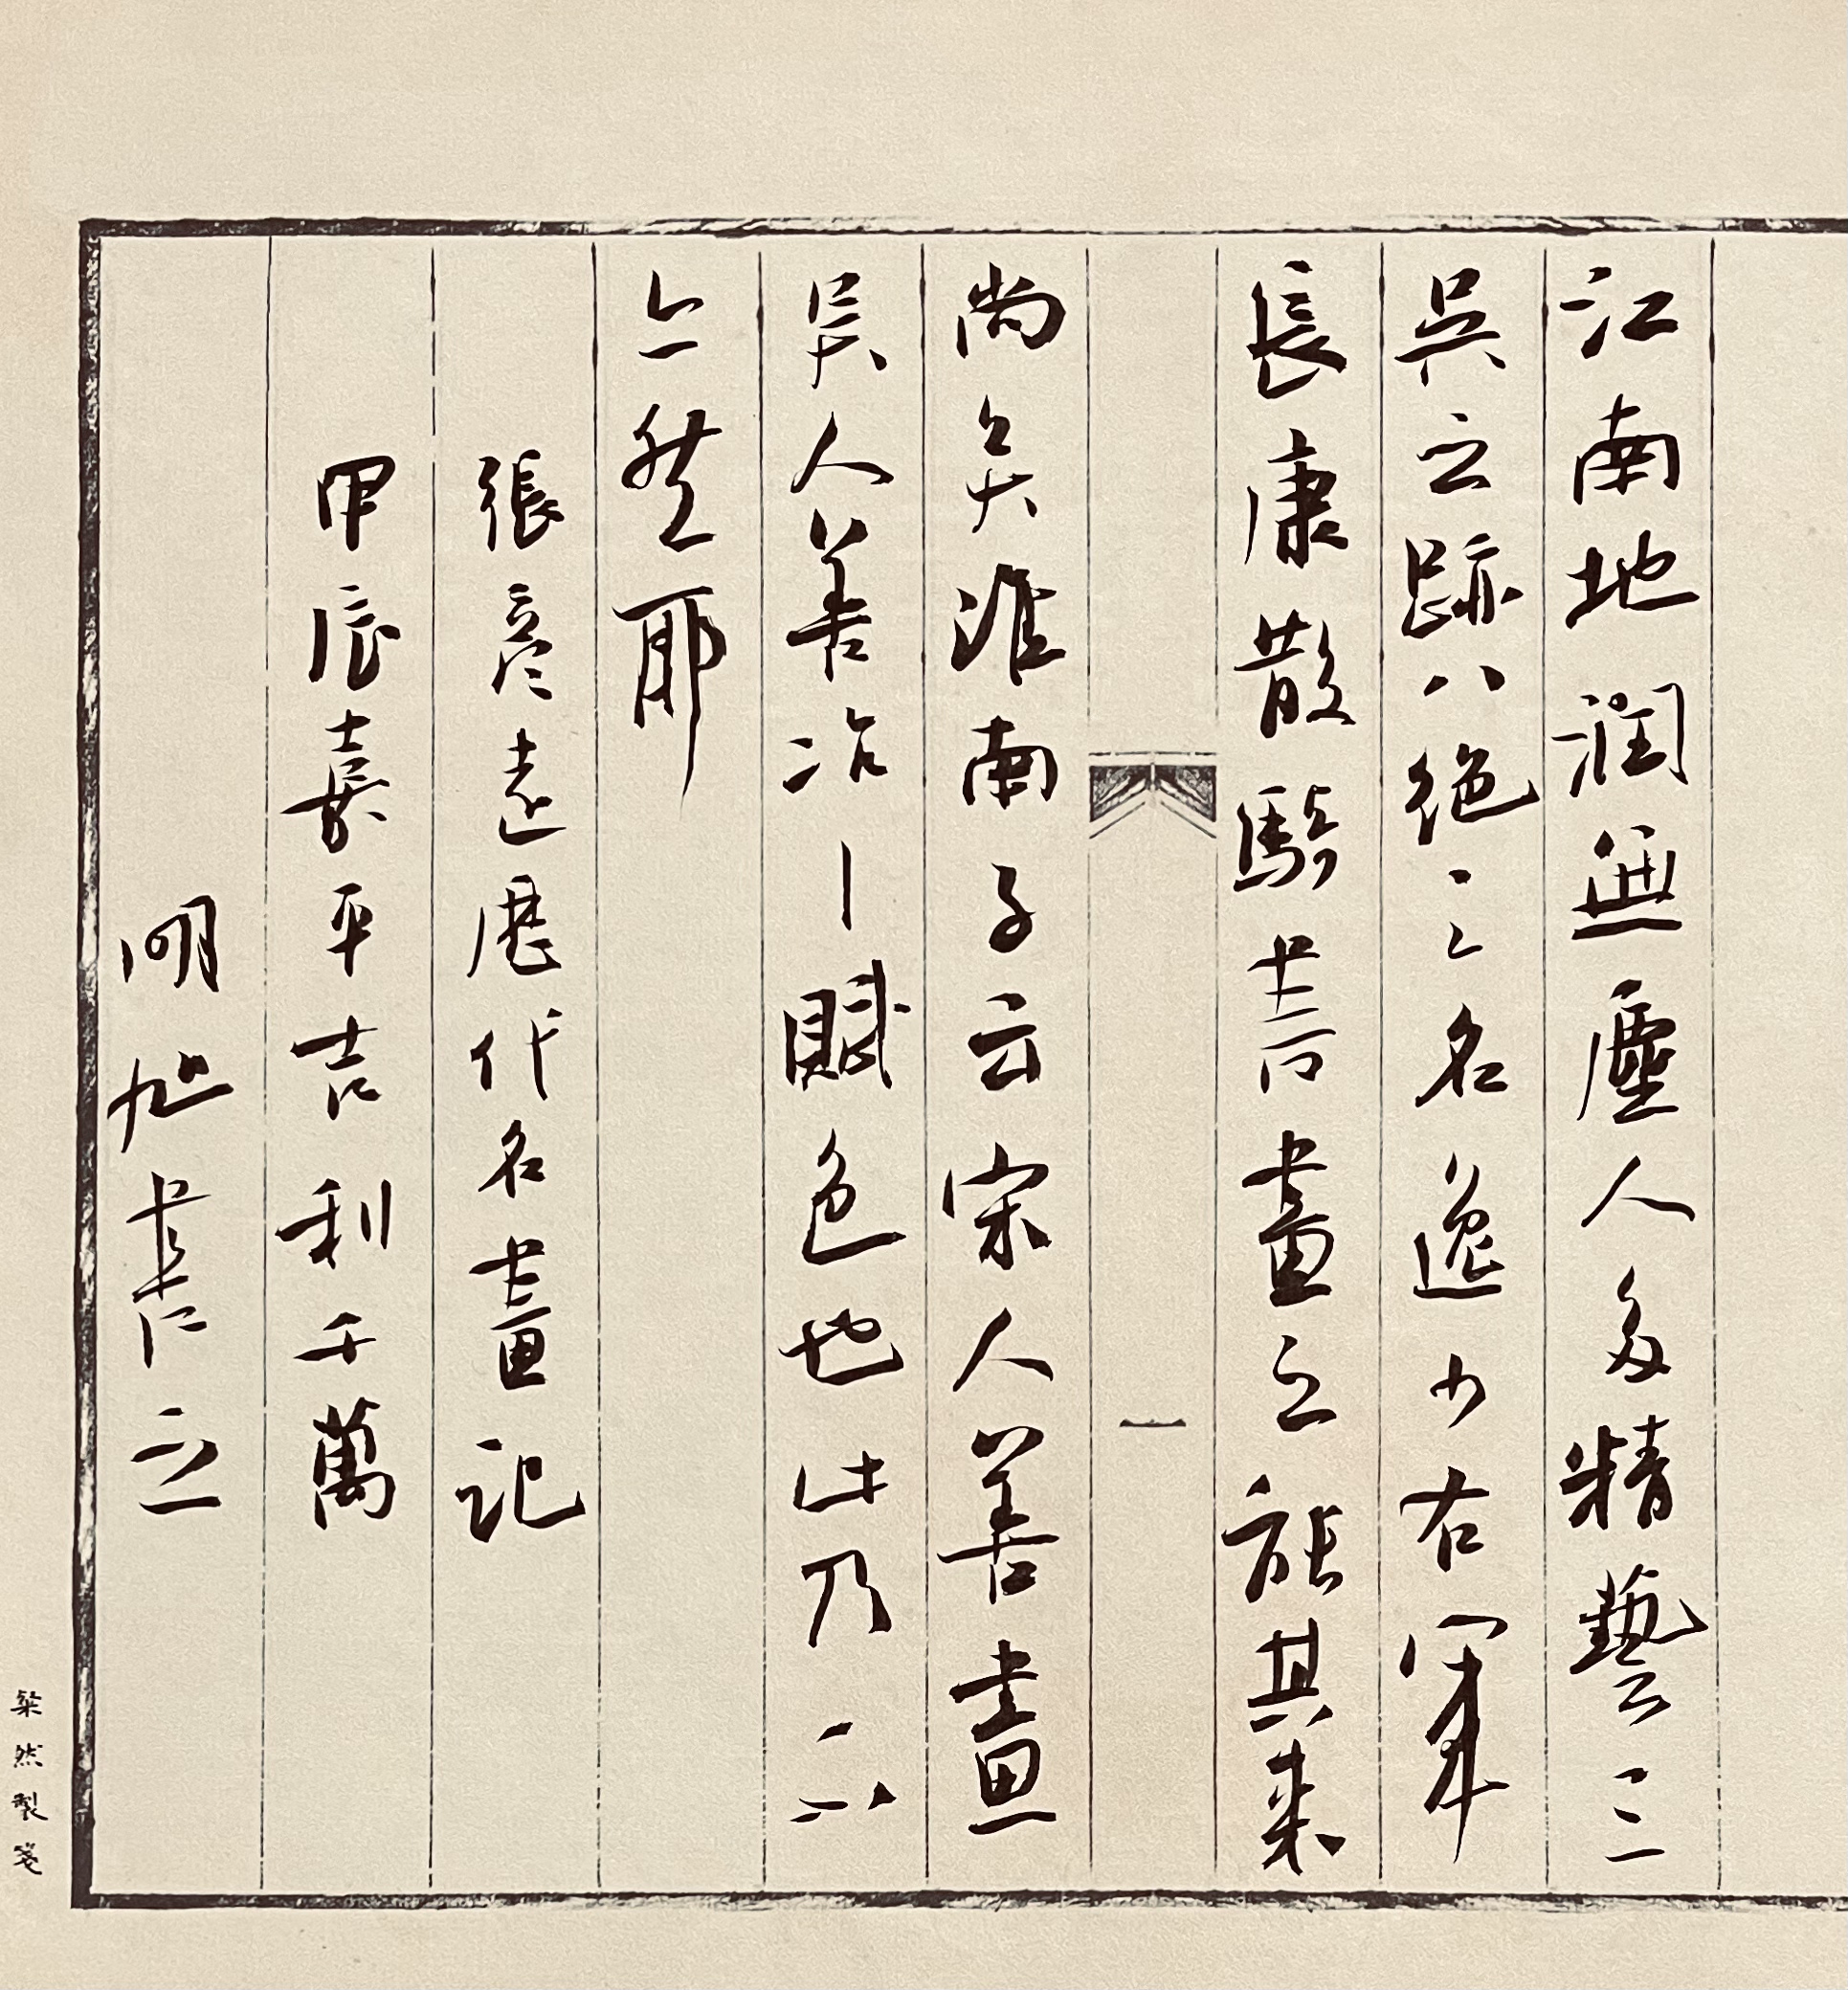 江南地潤無塵人多精藝三
吳之跡八絕之名逸少右軍
長康散騎書畫之能其來
一
尚矣淮南子云宋人善畫
吳人善冶丨賦色也此乃不
亦然耶
張彥遠歷代名畫記
甲辰嘉平吉利千萬
明旭書之
粲然製箋